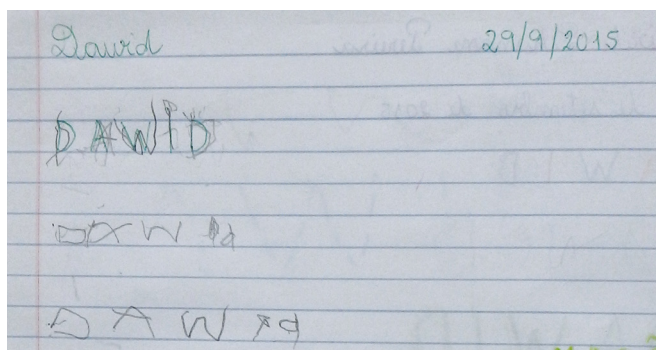 Dawid 29/9/2015
DAWID
DAWId
DAWId